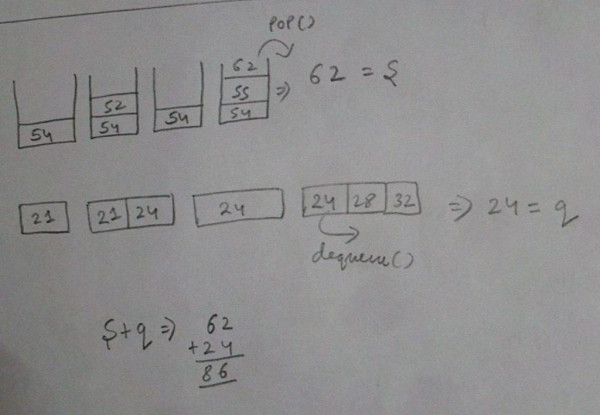 POP()
62
52 55 ⇒ 62 = S
54 54 54 54
21 21 24 24 24 28 32 ⇒ 24 = q
dequeue()
S+q ⇒ 62
+24
86